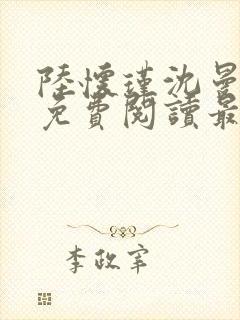 陸懷瑾沈曼
免費閱讀最
李政宰